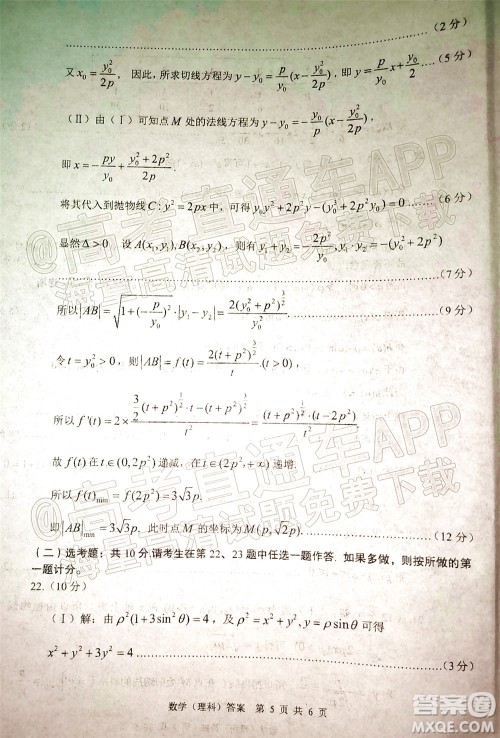 (2分)
又 $x_0=\frac{y_0^2}{2p}$， 因此，所求切线方程为 $y-y_0=\frac{p}{y_0}(x-\frac{y_0^2}{2p})$，即 $y=\frac{p}{y_0}x+\frac{y_0}{2}$ (5分)
(Ⅱ) 由 (Ⅰ) 可知点 M 处的法线方程为
即 $x=-\frac{py}{y_0}+\frac{y_0^2+2p^2}{2p}$
将其代入到抛物线 $C:y^2=2px$ 中，可得 (6分)
显然 Δ>0 设 $A(x_1,y_1),B(x_2,y_2)$，则有 $y_1+y_2=-\frac{2p^2}{y_0}$,
(7分)
所以 $|AB|=\sqrt{1+(-\frac{p}{y_0})^2}\cdot|y_1-y_2|=\frac{2(y_0^2+p^2)^{\frac{3}{2}}}{y_0^2}$ (9分)
令 $t=y_0^2>0$，则 $|AB|=f(t)=\frac{2(t+p^2)^{\frac{3}{2}}}{t}(t>0)$
所以
故 $f(t)$ 在 $t\in(0,2p^2)$ 递减，在 $t\in(2p^2,+\infty)$ 递增.
所以 $f(t)_{\min}=f(2p^2)=3\sqrt{3}p$.
即 $|AB|_{\min}=3\sqrt{3}p$. 此时点 M 的坐标为 $M(p,\sqrt{2}p)$ (12分)
(二) 选考题：共 10 分.请考生在第 22、23 题中任选一题作答. 如果多做，则按所做的第
一题计分。
22. (10分)
(Ⅰ) 解：由 $\rho^2(1+3\sin^2\theta)=4$，及 $\rho^2=x^2+y^2$，$y=\rho\sin\theta$ 可得
$x^2+y^2+3y^2=4$ (3分)
数学（理科）答案 第 5 页 共 6 页
@高考直通车APP
海量高清试题免费下载
@高考直通车APP
海量高清试题免费下载
MXQE
作业帮
MXQE.COM